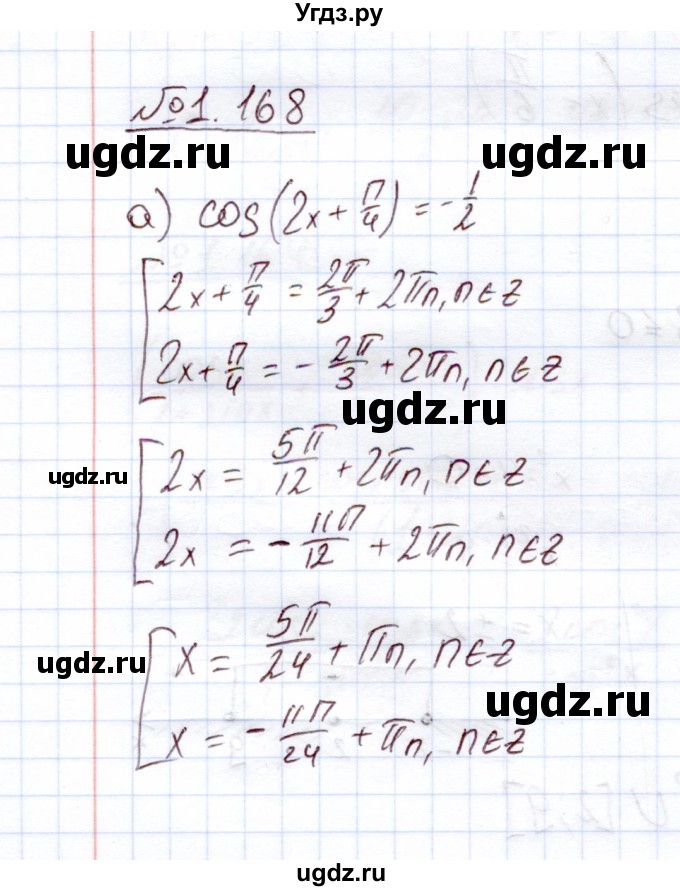 Угдз.ру
№1.168
ugdz.ru
ugdz.ru
а) cos(2x + π/4) = -1/2
[2x + π/4 = 2π/3 + 2πn, n∈Z
[2x + π/4 = -2π/3 + 2πn, n∈Z
ugdz.ru
ugdz.ru
[2x = 5π/12 + 2πn, n∈Z
[2x = -11π/12 + 2πn, n∈Z
ugdz.ru
ugdz.ru
[x = 5π/24 + πn, n∈Z
ugdz.ru
ugdz.ru
[x = -11π/24 + πn, n∈Z
ugdz.ru